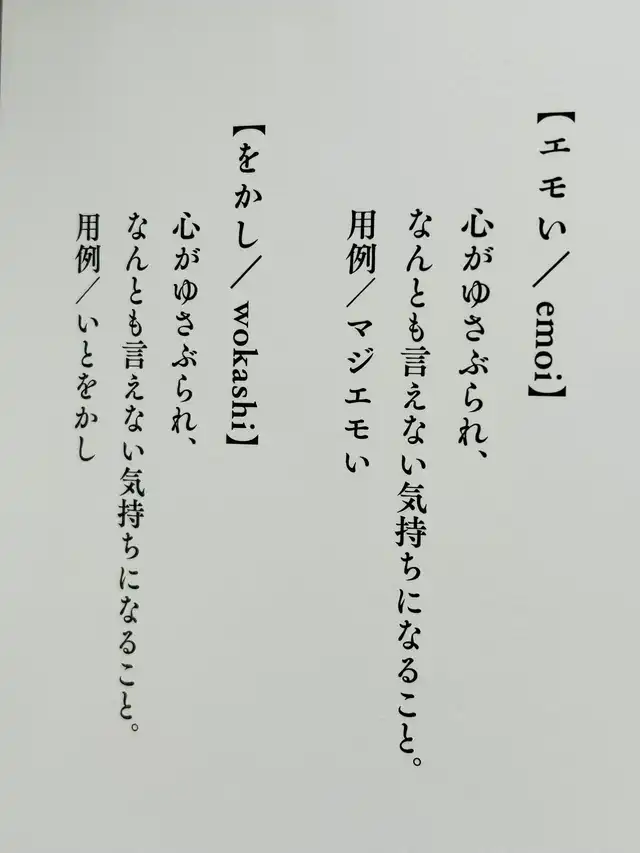 【エモい／emoi】
心がゆさぶられ、
なんとも言えない気持ちになること。
用例／マジエモい
【をかし／wokashi】
心がゆさぶられ、
なんとも言えない気持ちになること。
用例／いとをかし